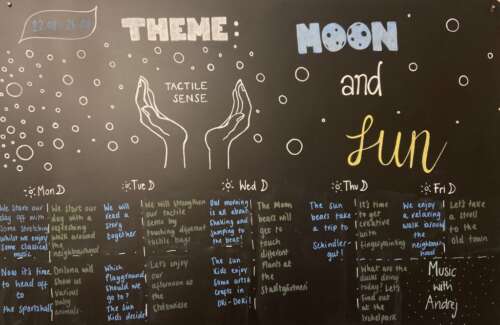 22.08 - 26.08
THEME:
MOON
and
Sun
TACTILE
SENSE
Mon
We start our
day off with
some stretching
whilst we enjoy
some classical
music
We start our
day with a
refreshing
walk around
the
neighbourhood
Now it's time
to head off
to
the sportshall
will
show us
various
baby
animals
Tue
We will
read a
story
together
We will strengthen
our tactile
sense by
touching different
tactile bags
Which
playground
should we
go to?
The Sun
Kids decide
Let's enjoy
our
afternoon at
the
Wed
Our morning
is all about
shaking and
jumping to
the beat
The Moon
bears will
get to
touch
different
plants at
the
The Sun
Kids enjoy
some arts&
crafts in
Oki-Doki!
Thu
The sun
bears take
a trip to
Schindler-
gut!
It's time
to get
creative
with
fingerpainting
What are the
ducks doing
today? Let's
find out
at the
Fri
We enjoy
a relaxing
walk around
the
neighbour-
hood
Let's take
a stroll
to the
old town
Music
with
Andrej